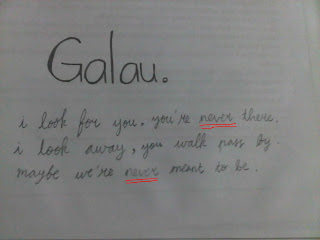 Galau.
i look for you. you're never there.
i look away, you walk pass by.
maybe we're never meant to be.